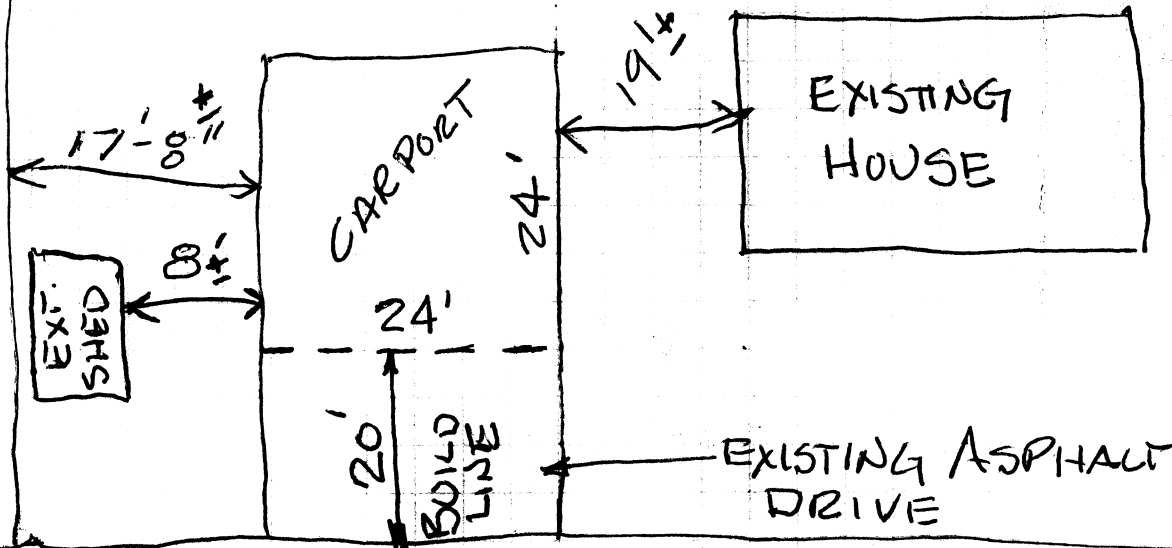 17'-8"±
CARPORT
24'
19'±
EXISTING
HOUSE
8'±
EXT.
SHED
24'
20'
BUILD
LINE
EXISTING ASPHALT
DRIVE